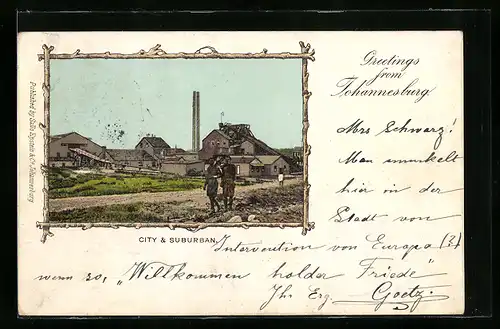 Greetings
from
Johannesburg
Published by Sallo Epstein & Co. Johannesburg.
CITY & SUBURBAN.
Mrs Schwarz!
Man munkelt
hier in der
Stadt von
Intervention von Europa (?)
wenn so, "Willkommen holder Friede"
Ihr Erg. Goetz